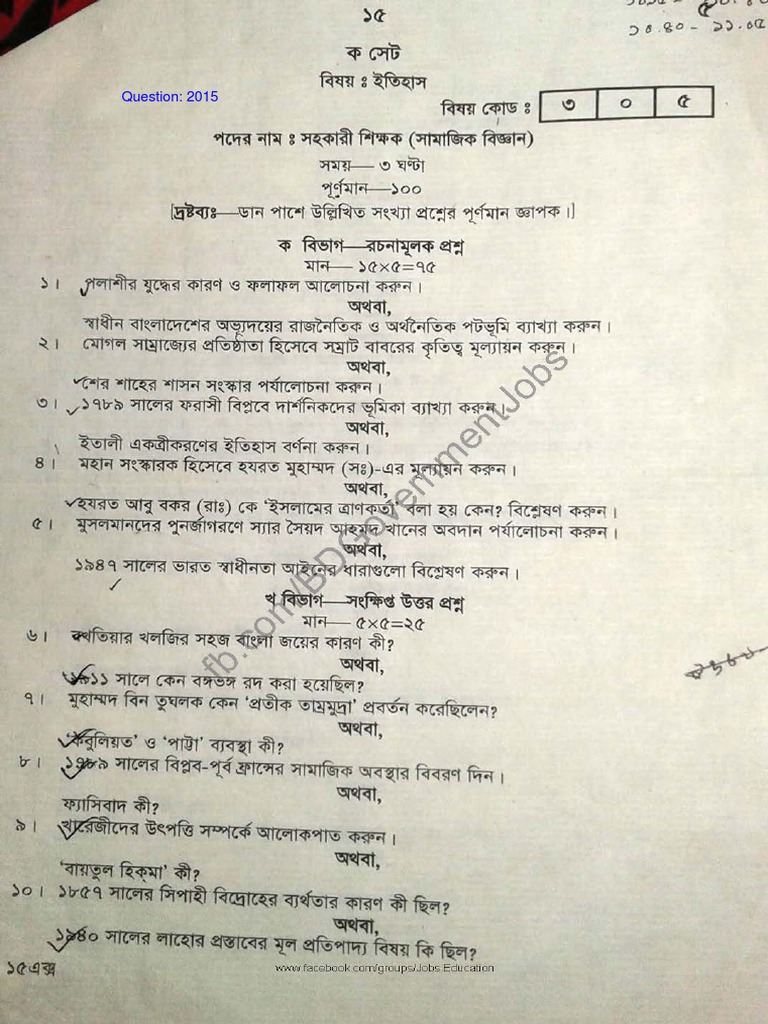 ১৫
১০.৪০ - ১১.০৫
ক সেট
বিষয় ঃ ইতিহাস
Question: 2015
বিষয় কোড ঃ ৩ ০ ৫
পদের নাম ঃ সহকারী শিক্ষক (সামাজিক বিজ্ঞান)
সময়— ৩ ঘণ্টা
পূর্ণমান—১০০
[দ্রষ্টব্যঃ—ডান পাশে উল্লিখিত সংখ্যা প্রশ্নের পূর্ণমান জ্ঞাপক।]
ক বিভাগ—রচনামূলক প্রশ্ন
মান— ১৫×৫=৭৫
১। পলাশীর যুদ্ধের কারণ ও ফলাফল আলোচনা করুন।
অথবা,
স্বাধীন বাংলাদেশের অভ্যুদয়ের রাজনৈতিক ও অর্থনৈতিক পটভূমি ব্যাখ্যা করুন।
২। মোগল সাম্রাজ্যের প্রতিষ্ঠাতা হিসেবে সম্রাট বাবরের কৃতিত্ব মূল্যায়ন করুন।
অথবা,
শের শাহের শাসন সংস্কার পর্যালোচনা করুন।
৩। ১৭৮৯ সালের ফরাসী বিপ্লবে দার্শনিকদের ভূমিকা ব্যাখ্যা করুন।
অথবা,
ইতালী একত্রীকরণের ইতিহাস বর্ণনা করুন।
৪। মহান সংস্কারক হিসেবে হযরত মুহাম্মদ (সঃ)-এর মূল্যায়ন করুন।
অথবা,
হযরত আবু বকর (রাঃ) কে ‘ইসলামের ত্রাণকর্তা’ বলা হয় কেন? বিশ্লেষণ করুন।
৫। মুসলমানদের পুনর্জাগরণে স্যার সৈয়দ আহমদ খানের অবদান পর্যালোচনা করুন।
অথবা,
১৯৪৭ সালের ভারত স্বাধীনতা আইনের ধারাগুলো বিশ্লেষণ করুন।
খ বিভাগ—সংক্ষিপ্ত উত্তর প্রশ্ন
মান— ৫×৫=২৫
৬। বখতিয়ার খলজির সহজ বাংলা জয়ের কারণ কী?
অথবা,
১৯১১ সালে কেন বঙ্গভঙ্গ রদ করা হয়েছিল?
৭। মুহাম্মদ বিন তুঘলক কেন ‘প্রতীক তাম্রমুদ্রা’ প্রবর্তন করেছিলেন?
অথবা,
‘কবুলিয়ত’ ও ‘পাট্টা’ ব্যবস্থা কী?
৮। ১৭৮৯ সালের বিপ্লব-পূর্ব ফ্রান্সের সামাজিক অবস্থার বিবরণ দিন।
অথবা,
ফ্যাসিবাদ কী?
৯। খারেজীদের উৎপত্তি সম্পর্কে আলোকপাত করুন।
অথবা,
‘বায়তুল হিক্‌মা’ কী?
১০। ১৮৫৭ সালের সিপাহী বিদ্রোহের ব্যর্থতার কারণ কী ছিল?
অথবা,
১৯৪০ সালের লাহোর প্রস্তাবের মূল প্রতিপাদ্য বিষয় কি ছিল?
১৫এক্স
www.facebook.com/groups/Jobs.Education
fb.com/BDGovernmentJobs